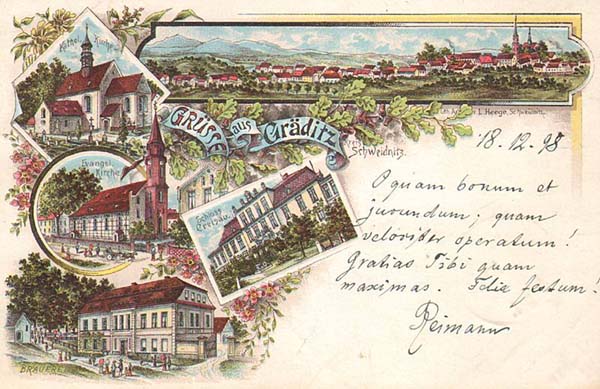 Kathol. Kirche
L. Heege, Schweidnitz.
GRUSS aus Gräditz
Kreis Schweidnitz.
Evangel. Kirche
Schloss Creisau.
BRAUEREI
18.12.98
O quam bonum et
jucundum; quam
velociter operatum!
Gratias Tibi quam
maximas.
festum!
Reimann